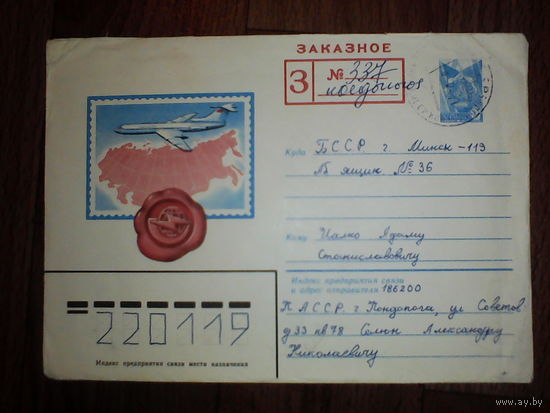 ЗАКАЗНОЕ
З
№ 337
Куда БССР г. Минск-119
№ 36
Кому
Адаму
Станиславовичу
Индекс предприятия связи
и адрес отправителя 186200
АССР. г. Кондопога, ул Советов
д 33 кв 78 Александру
Николаевичу
220119
Индекс предприятия связи места назначения
www.ay.by